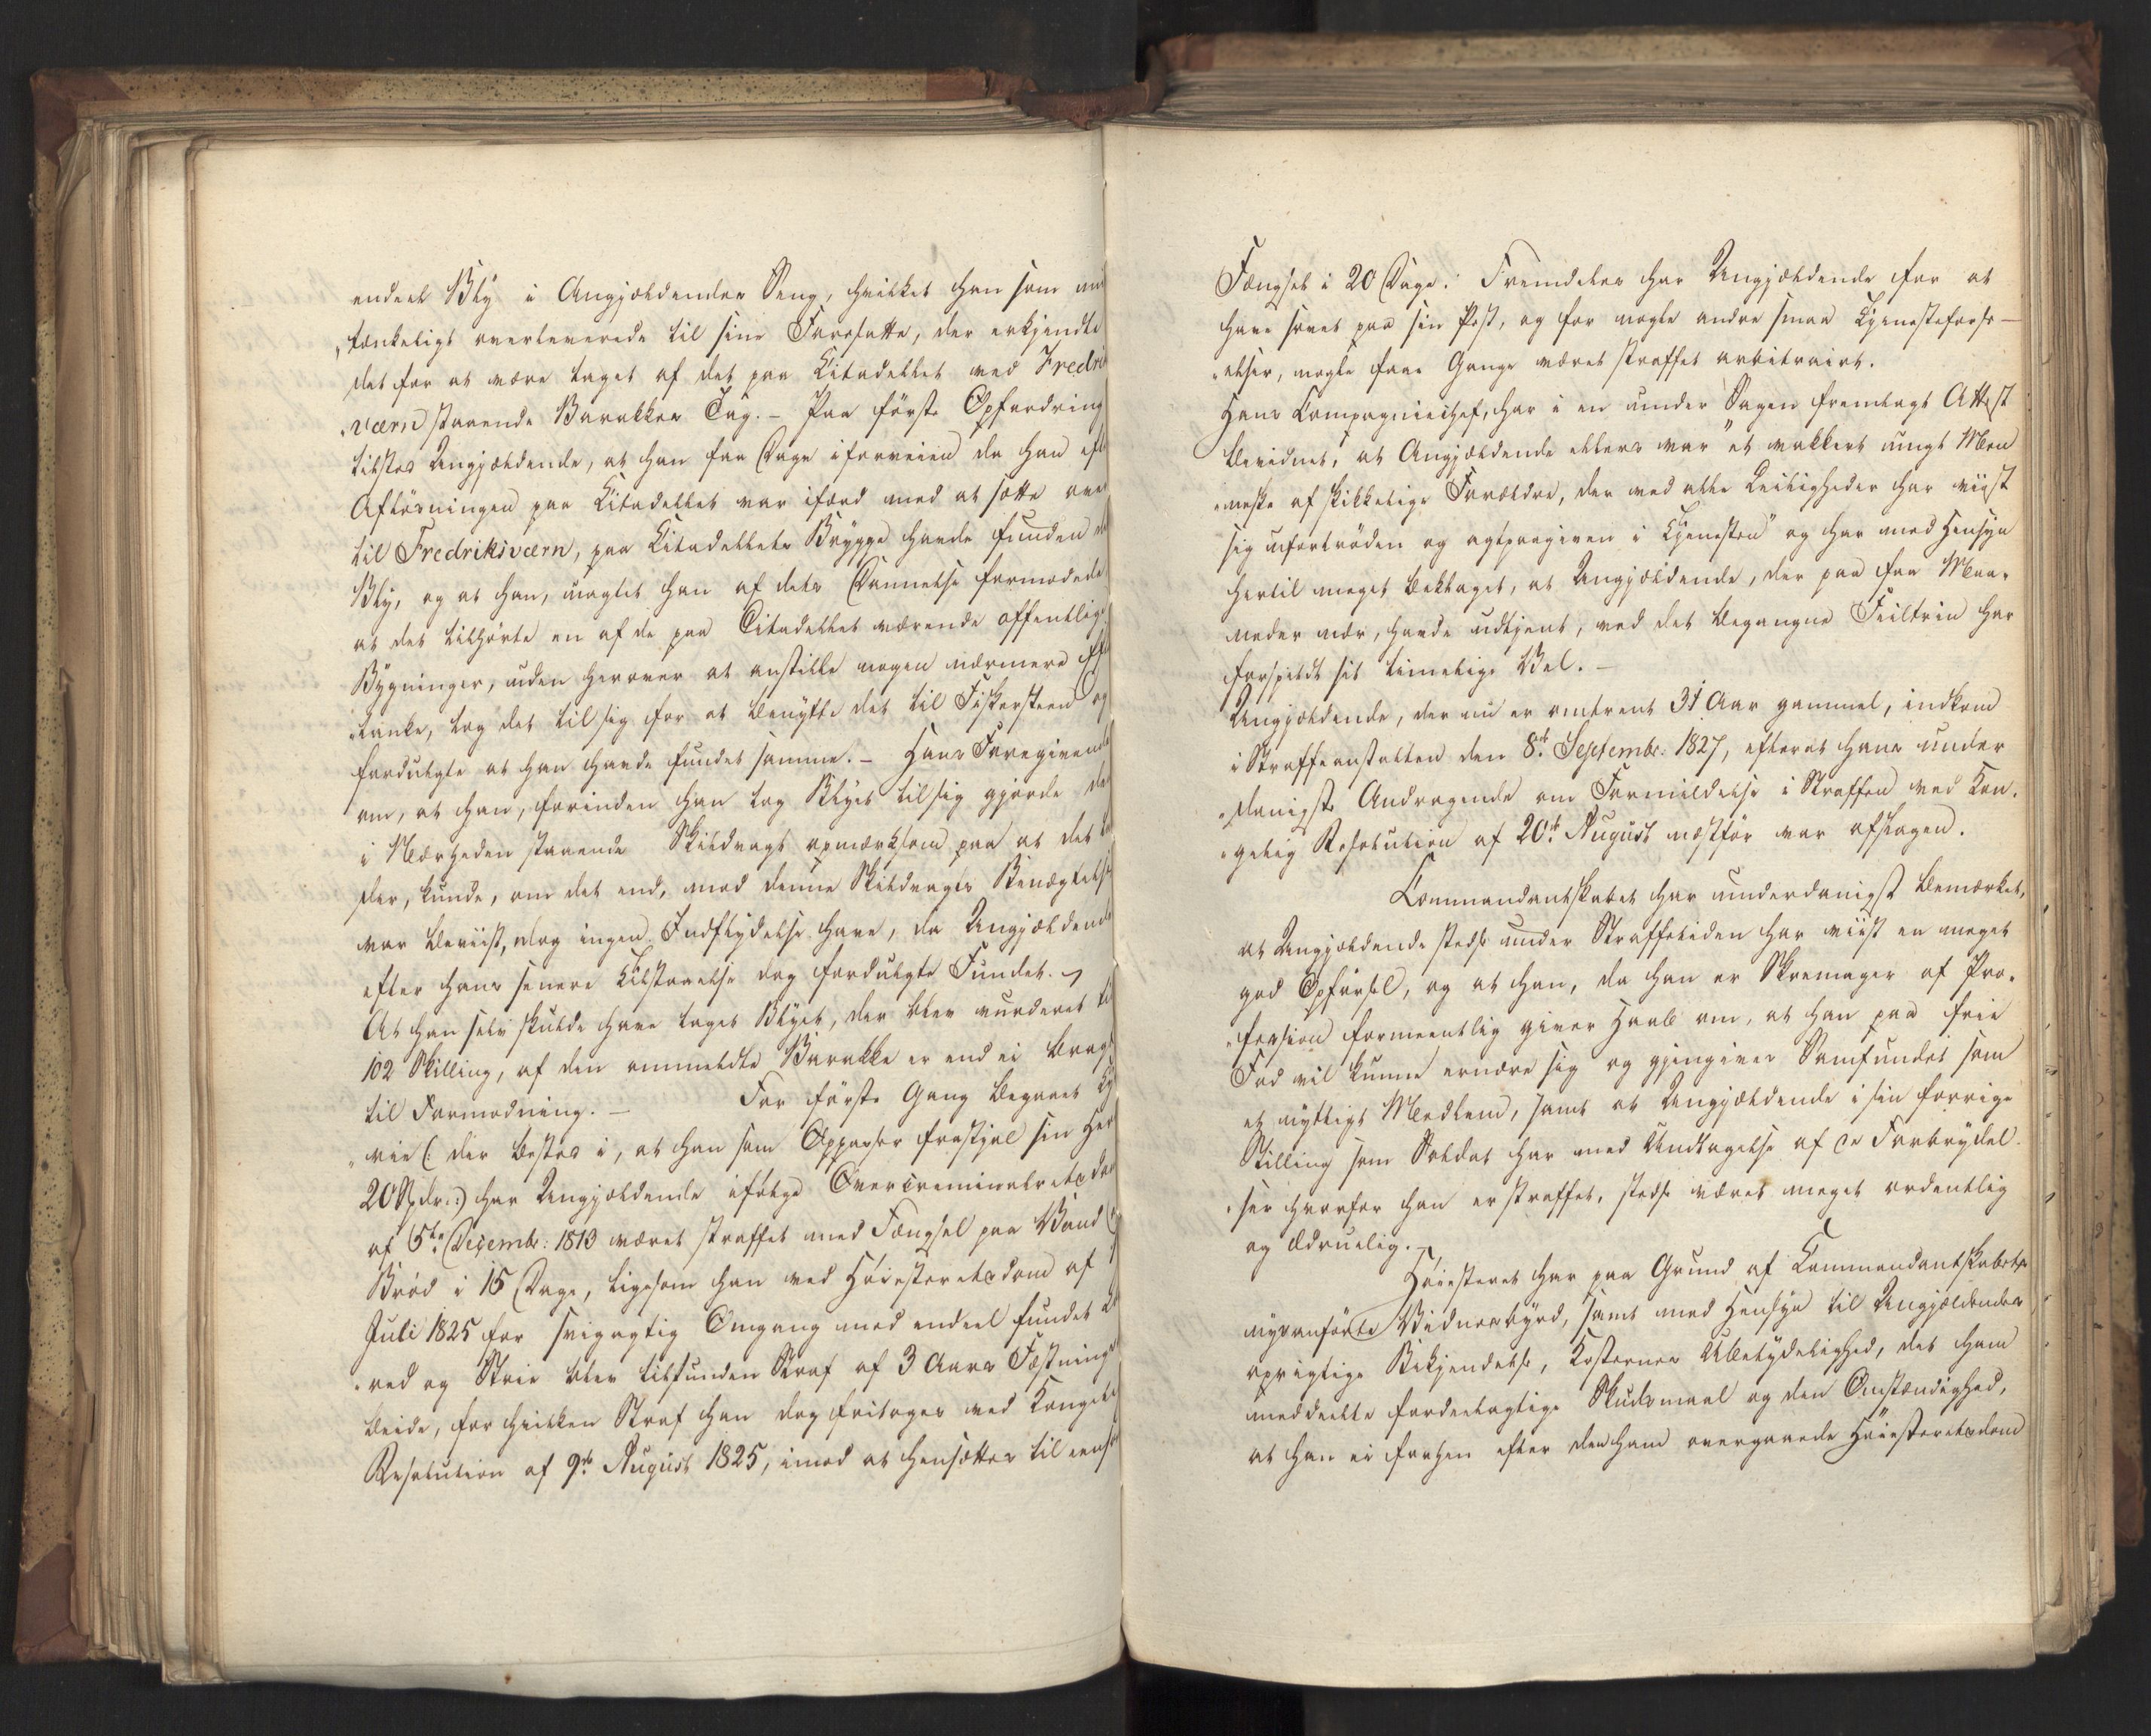 endeel Bly i Angjældendes Seng, hvilket han som mis
„tænkeligt overleverede til sine Foresatte, der erkjendte
det for at være taget af det paa Citadellet ved Fredri
„værn staaende Barakkes Tag. – Paa første Opfordring
tilstod Angjældende, at han faa Dage iforveien da han eft
Afløsningen paa Citadellet var ifærd med at sætte over
til Fredriksværn, paa Citadellets Brygge havde funden
Bly, og at han, uagtet han af dets Dannelse formodede
at det tilhørte en af de paa Citadellet værende offentlige
Bygninger, uden herover at anstille nogen nærmere Eft
„tanke, tog det til sig for at benytte det til Fiskesteen og
fordulgte at han havde fundet samme. – Hans Foregivende
om, at han, forinden han tog Blyet til sig gjorde den
i Nærheden staaende Skildvagt opmærksom paa at det
der, kunde, om det end, mod denne Skildvagts Benægtelse
var beviist, dog ingen Indflydelse have, da Angjældende
efter hans senere Tilstaaelse dog fordulgte Fundet. –
At han selv skulde have taget Blyet, der blev vurderet til
102 Skilling, af den ommeldte Barakke er end ei bragt
til Formodning. – For første Gang begaaet Ty
„veri (: der bestod i, at han som Oppasser frastjal sin Her
20 Spdr. :) har Angjældende ifølge Overcriminalretsdom
af 5te Decembr: 1813 været straffet med Fængsel paa Vand
Brød i 15 Dage, ligesom han ved Høiesteretsdom af
Juli 1825 for svigagtig Omgang med endeel fundet
„red og Strie blev tilfunden Straf af 3 Aars Fæstnings
beide, for hvilken Straf han dog fritoges ved Kongel
Resolution af 9de August 1825, imod at hensættes til eens
Fængsel i 20 Dage. Fremdeles har Angjældende for at
have sovet paa sin Post, og for nogle andre smaa Tjenesteforse
„elser, nogle faae Gange været straffet arbitrairt.
Hans Compagniechef, har i en under Sagen fremlagt Attest
bevidnet, at Angjældende ellers var "et vakkert ungt Men
„neske af skikkelige Forældre, der ved alle Leiligheder har viist
sig ufortrøden og agtpaagiven i Tjenesten" og har med Hensyn
hertil meget beklaget, at Angjældende, der paa faa Maa„
neder nær, havde udtjent, ved det begangne Feiltrin har
forspildt sit timelige Vel. –
Angjældende, der nu er omtrent 31 Aar gammel, indkom
i Straffeanstalten den 8de Septembr: 1827, efterat hans under
„danigste Andragende om Formildelse i Straffen ved Kon„
„gelig Resolution af 20de August næstfør var afslagen.
Commandantskabet har underdanigst bemærket,
at Angjældende stedse under Straffetiden har viist en meget
god Opførsel, og at han, da han er Skomager af Pro„
„fession formeentlig giver Haab om, at han paa frie
Fod vil kunne ernære sig og gjengives Samfundet som
et nyttigt Medlem, samt at Angjældende i sin forrige
Stilling som Soldat har med Undtagelse af de Forbrydel„
„ser hvorfor han er straffet, stedse været meget ordentlig
og ædruelig. –
Høiesteret har paa Grund af Commandantskabets
nysanførte Vidnesbyrd, samt med Hensyn til Angjældendes
oprigtige Bekjendelse, Kosternes Ubetydelighed, det ham
meddeelte fordeelagtige Skudsmaal og den Omstændighed,
at han ei forhen efter den ham overgaaede Høiesteretsdom